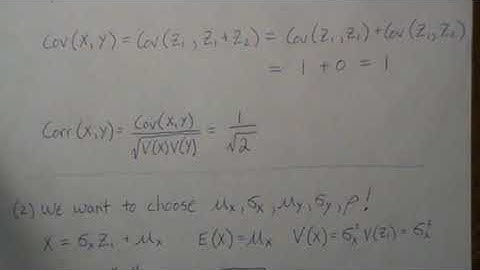 Cov(X,Y) = Cov(Z₁, Z₁+Z₂) = Cov(Z₁,Z₁)+Cov(Z₁,Z₂)
= 1 + 0 = 1
Corr(X,Y) = Cov(X,Y)/√V(X)V(Y) = 1/√2
(2) We want to choose μₓ, σₓ, μᵧ, σᵧ, ρ!
X = σₓ Z₁ + μₓ E(X) = μₓ V(X) = σₓ² V(Z₁) = σₓ²